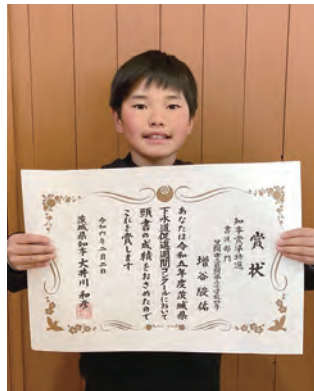 賞状
知事賞準特選
書道部門
増谷駿佑
あなたは令和五年度茨城県
下水道促進週間コンクールにおいて
頭書の成績をおさめたので
これを賞します
令和六年二月二日
茨城県知事 大井川和彦